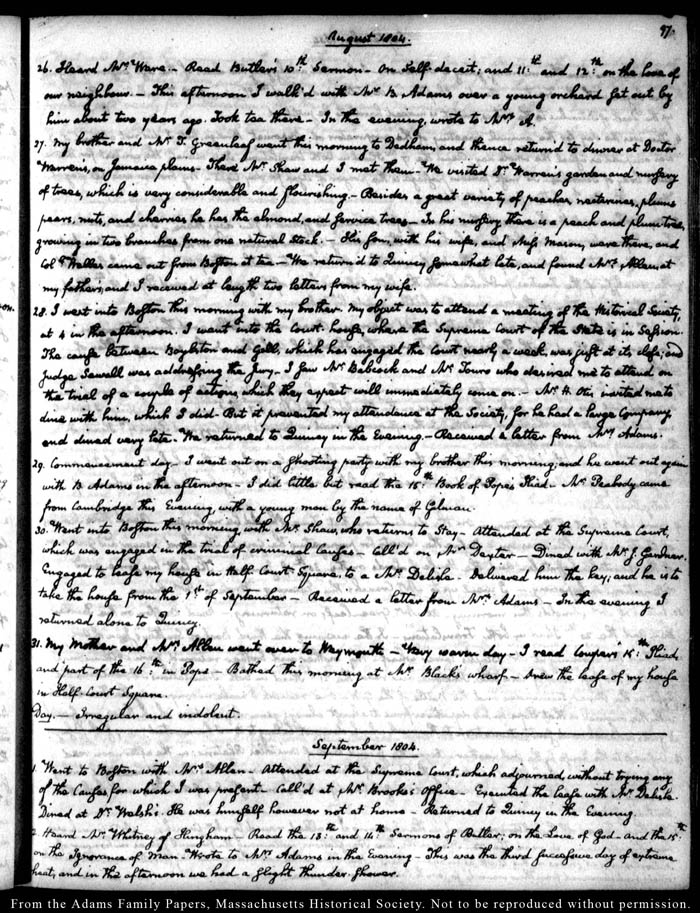 August 1804.
97.
26. Heard Mr: Ware.— Read Butler's 10th: Sermon— On Self-deceit; and 11th: and 12th: on the love of
our neighbour.— This afternoon I walk'd with Mr: B. Adams over a young orchard set out by
him about two years ago. Took tea there— In the evening, wrote to Mrs: A.
27. My brother and Mr: T. Greenleaf went this morning to Dedham, and thence return'd to dinner at Doctor
Warren's, on Jamaica plains— There Mr: Shaw and I met them— We visited Dr: Warren's garden and nursery
of trees, which is very considerable and flourishing— Besides a great variety of peaches, nectarines, plums
pears, nuts, and cherries he has the almond, and service trees— In his nursery there is a peach and plum tree,
growing in two branches from one natural stock.— His son, with his wife, and Miss Mason, were there, and
Coll: Welles came out from Boston at tea— We return'd to Quincy somewhat late, and found Mrs: Allen at
my father's, and I received at length two letters from my wife.
28. I went into Boston this morning with my brother. My object was to attend a meeting of the Historical Society,
at 4 in the afternoon. I went into the Court-house, where the Supreme Court of the State is in Session.
The cause between Boylston and Gill, which has engaged the Court nearly a week, was just at its close; and
Judge Sewall was addressing the Jury.— I saw Mr: Babcock and Mr: Touro who desired me to attend on
the trial of a couple of actions, which they expect will immediately come on.— Mr: H. Otis invited me to
dine with him, which I did— But it prevented my attendance at the Society, for he had a large Company
and dined very late. We returned to Quincy in the Evening.— Received a letter from Mrs: Adams.
29. Commencement day— I went out on a shooting party with my brother this morning; and he went out again
with B. Adams in the afternoon— I did little but read the 15th: Book of Pope's Iliad— Mr: Peabody came
from Cambridge this Evening, with a young man by the name of Gilman.
30. Went into Boston this morning, with Mr: Shaw, who returns to stay— Attended at the Supreme Court,
which was engaged in the trial of criminal Causes— Call'd on Mr: Dexter— Dined with Mr: J. Gardner.
Engaged to lease my house in Half-Court Square, to a Mr: Delisle. Delivered him the key; and he is to
take the house from the 1st of September— Received a letter from Mrs: Adams— In the evening I
returned alone to Quincy.
31. My Mother and Mrs: Allen went over to Weymouth— Very warm day— I read Cowper's 15:th Iliad,
and part of the 16:th in Pope— Bathed this morning at Mr: Black's wharf— Drew the lease of my house
in Half-Court Square.
Day.— Irregular and indolent.
September 1804.
1. Went to Boston with Mrs: Allen— Attended at the Supreme Court, which adjourned without trying any
of the Causes for which I was present— Call'd at Mr: Brooks's Office— Executed the lease with Mr: Delisle.
Dined at Dr: Welsh's. He was himself however not at home— Returned to Quincy in the Evening.
2. Heard Mr: Whitney of Hingham— Read the 13:th and 14:th Sermons of Butler; on the Love of God— And the 15:th
on the Ignorance of Man— Wrote to Mrs: Adams in the Evening— This was the third successive day of extreme
heat, and in the afternoon we had a slight thunder-shower.
From the Adams Family Papers, Massachusetts Historical Society. Not to be reproduced without permission.